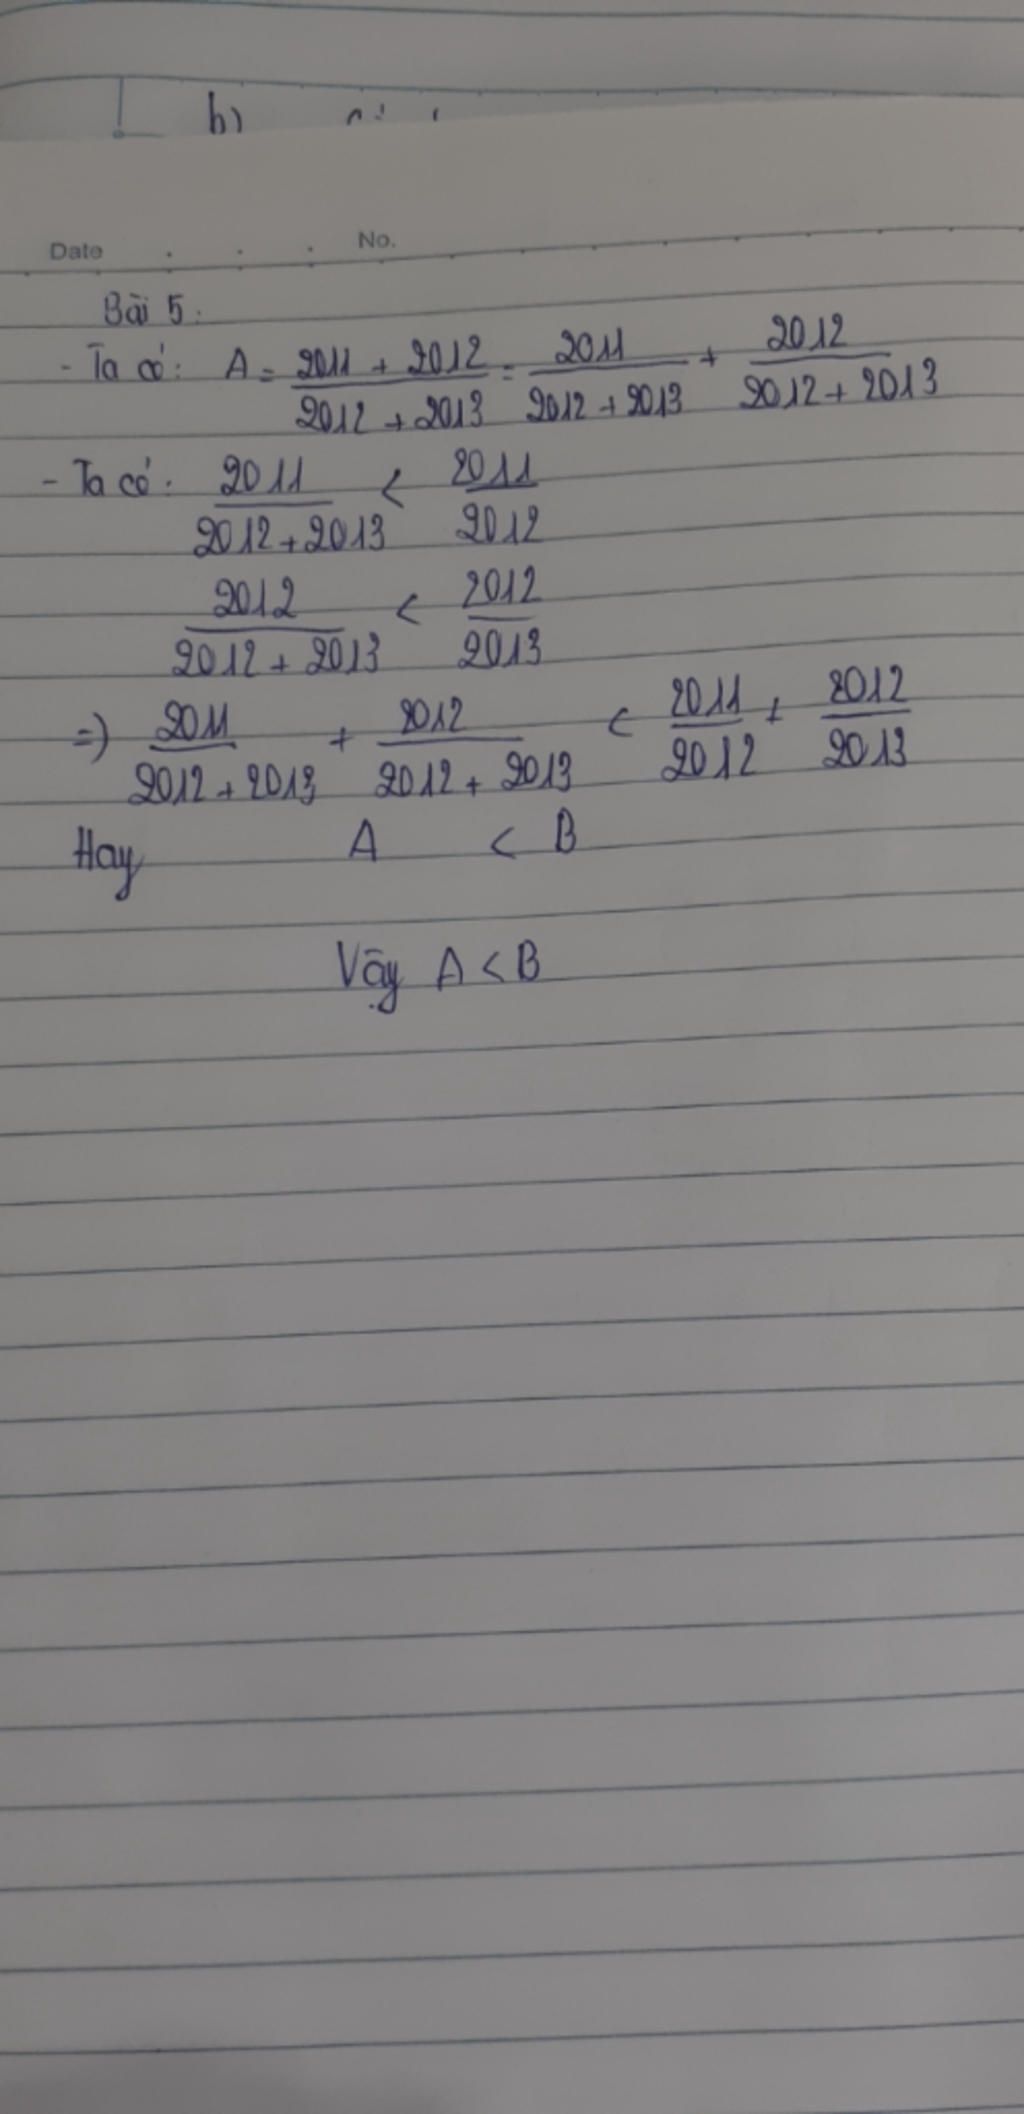 b)
Date No.
Bài 5:
- Ta có: A = (2011 + 2012)/(2012 + 2013) = 2011/(2012 + 2013) + 2012/(2012 + 2013)
- Ta có: 2011/(2012 + 2013) < 2011/2012
2012/(2012 + 2013) < 2012/2013
=) 2011/(2012 + 2013) + 2012/(2012 + 2013) < 2011/2012 + 2012/2013
Hay A < B
Vậy A < B